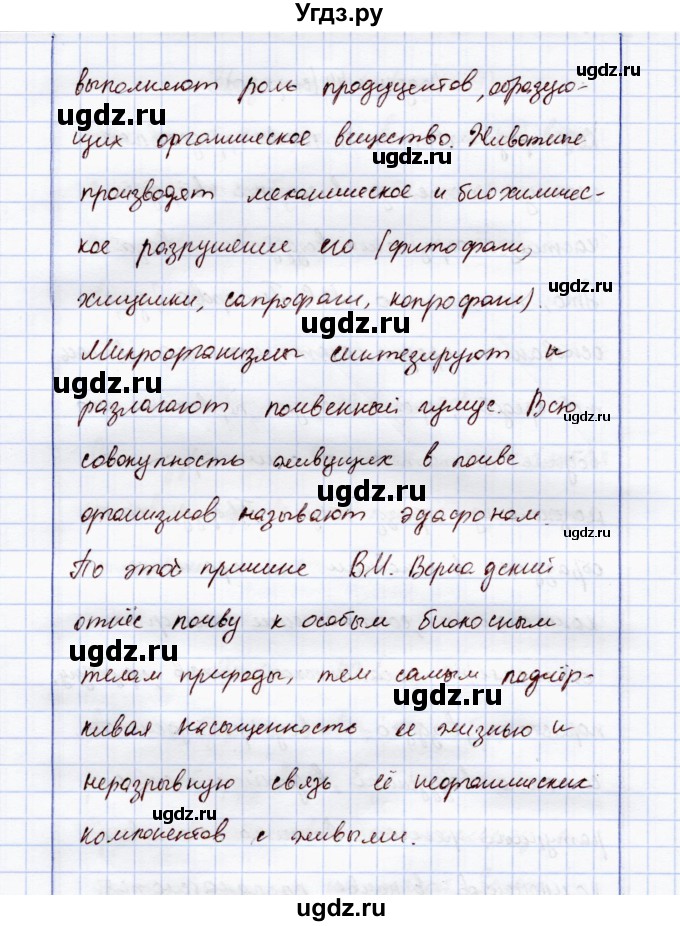 Угдз.ру
выполняют роль продуцентов, образую-
ugdz.ru
ugdz.ru
щих органическое вещество. Животные
ugdz.ru
производят механическое и биохимичес-
кое разрушение его (фитофаги,
ugdz.ru
хищники, сапрофаги, копрофаги).
ugdz.ru
Микроорганизмы синтезируют и
ugdz.ru
разлагают почвенный гумус. Всю
ugdz.ru
совокупность живущих в почве
ugdz.ru
организмов называют эдафоном.
ugdz.ru
По этой причине В.И. Вернадский
отнёс почву к особым биокосным
ugdz.ru
ugdz.ru
телам природы, тем самым подчёр-
ugdz.ru
кивая насыщенность её жизнью и
неразрывную связь её неорганических
ugdz.ru
компонентов с живыми.
ugdz.ru
ugdz.ru